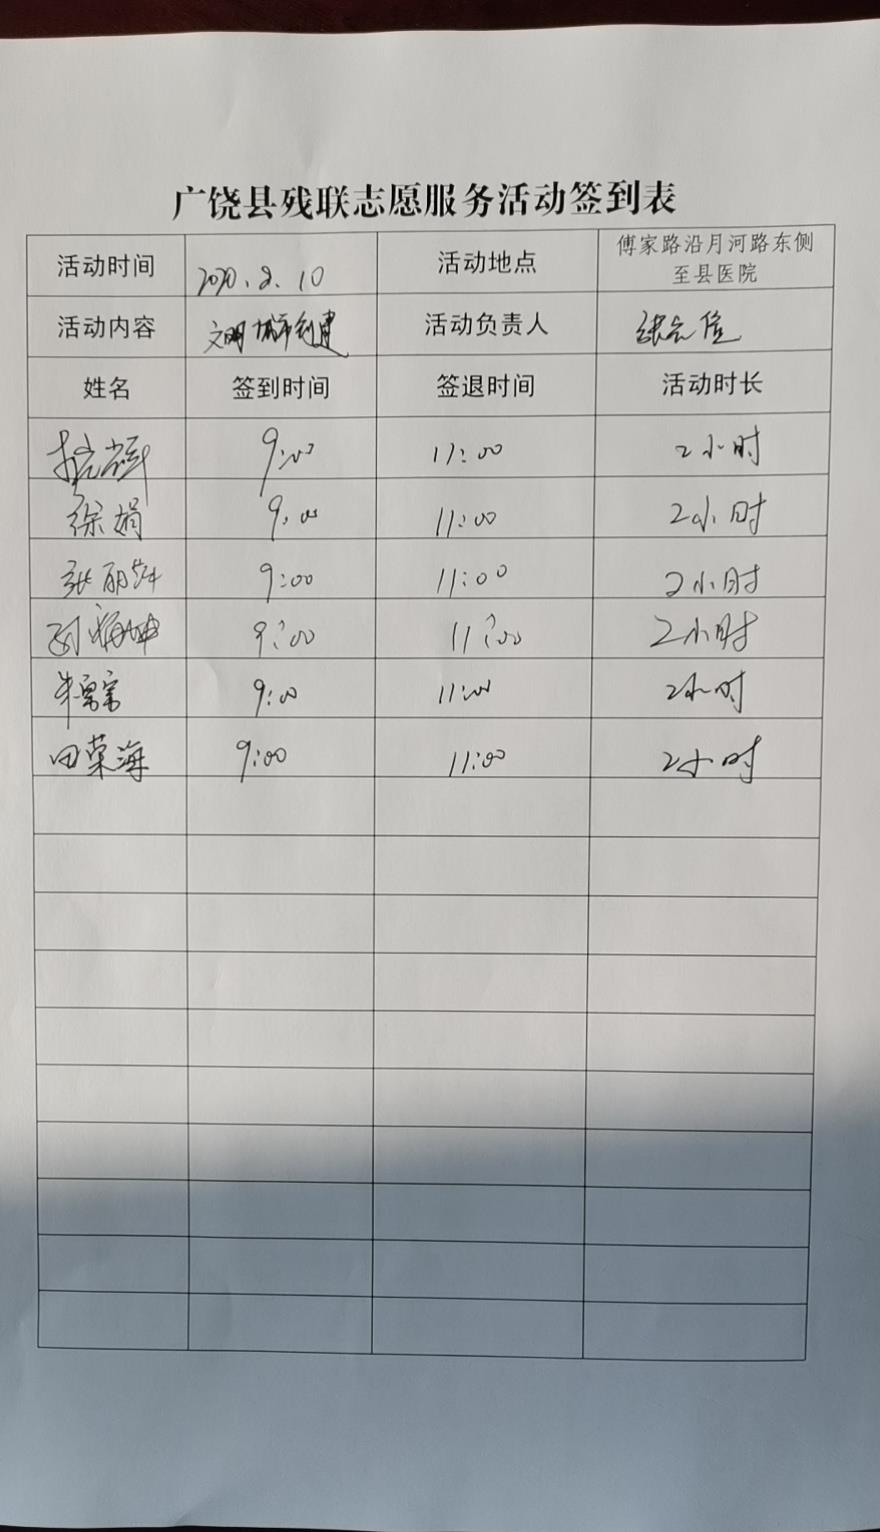 广饶县残联志愿服务活动签到表
活动时间 2020.8.10 活动地点 傅家路沿月河路东侧
至县医院
活动内容 文明城市创建 活动负责人
姓名 签到时间 签退时间 活动时长
9:00 11:00 2小时
徐娟 9:00 11:00 2小时
张丽 9:00 11:00 2小时
9:00 11:00 2小时
9:00 11:00 2小时
田荣海 9:00 11:00 2小时